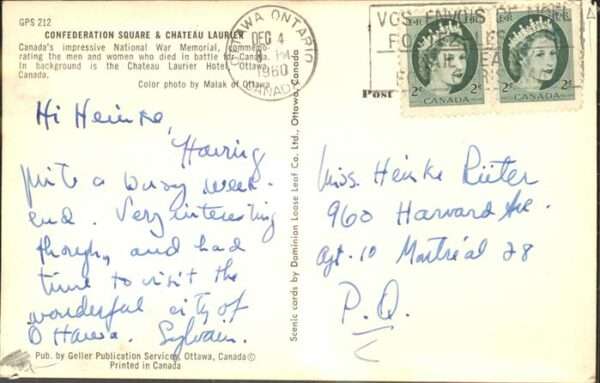 GPS 212
CONFEDERATION SQUARE & CHATEAU LAURIER
Canada's impressive National War Memorial, commemo-
rating the men and women who died in battle for Canada.
In background is the Chateau Laurier Hotel, Ottawa,
Canada.
Color photo by Malak of Ottawa
OTTAWA ONTARIO
DEC 4
PM
1960
CANADA
VOS ENVOIS DE
Post
CANADA
2¢ 2¢
CANADA
2¢ 2¢
Hi Heinke,
Having
quite a busy week-
end. Very interesting
though, and had
time to visit the
wonderful city of
Ottawa. Sylvain.
Scenic cards by Dominion Loose Leaf Co. Ltd., Ottawa, Canada
Miss. Heinke Rüter
960 Harvard Ave.
Apt. 10 Montréal 28
P.Q.
Pub. by Geller Publication Services, Ottawa, Canada ©
Printed in Canada